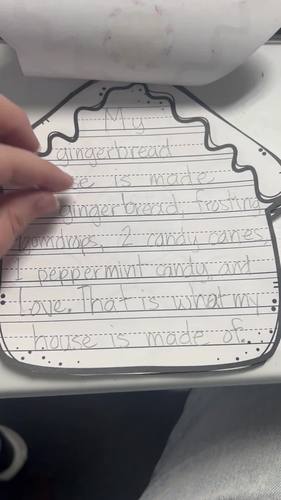 My
gingerbread
is made
gingerbread, frosting
gumdrops, 2 candy canes
1 peppermint candy, and
Love. That is what my
house is made of.